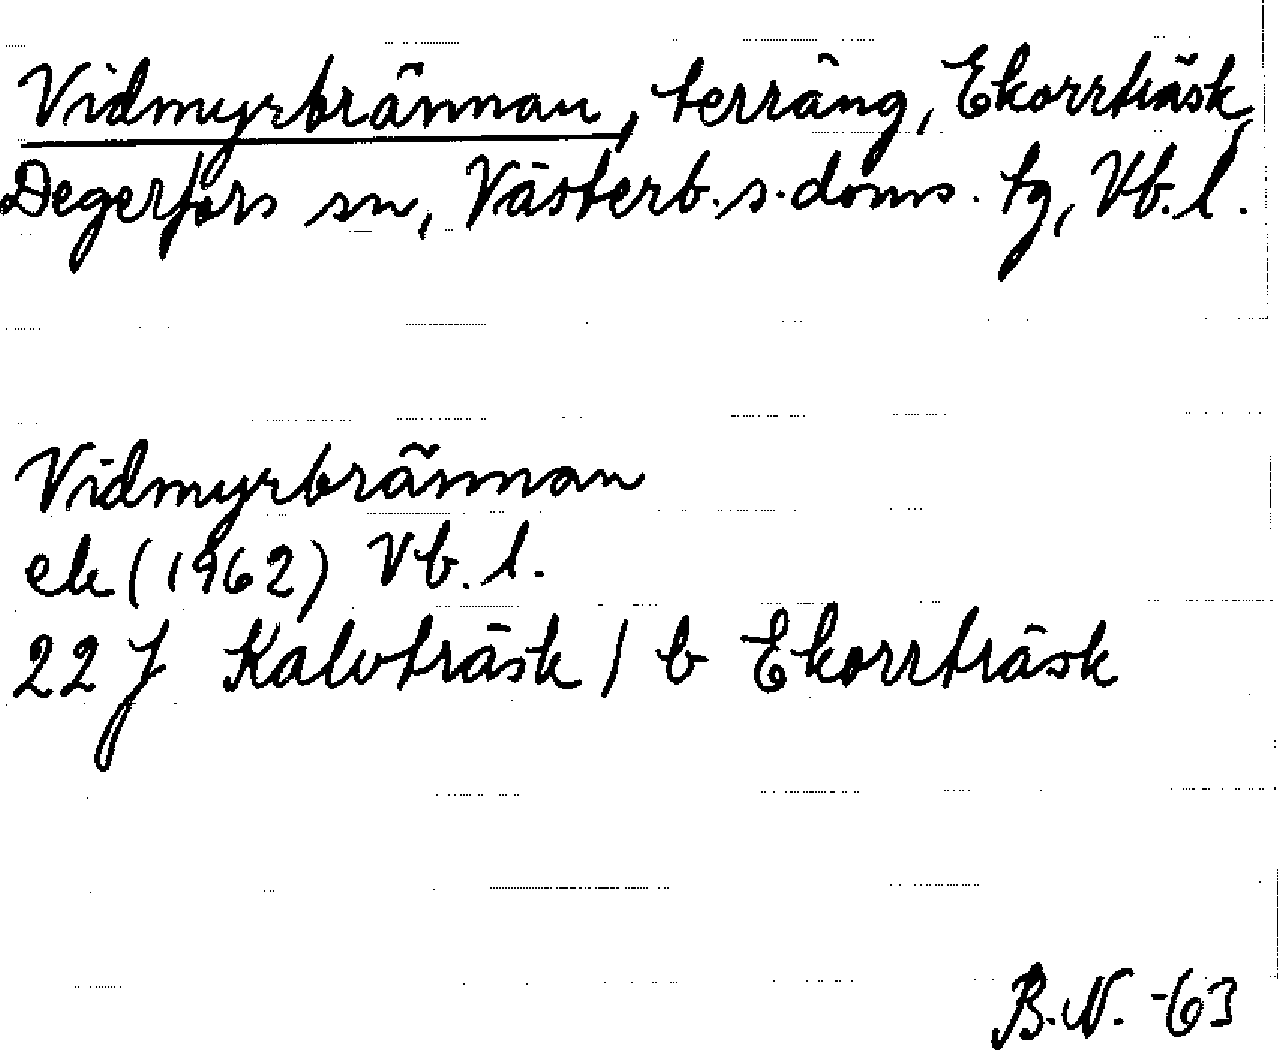 Vidmyrbrännan, terräng, Ekorrträsk,
Degerfors sn, Västerb. s. doms. tg, Vb. l.
Vidmyrbrännan
ek (1962) Vb. l.
22 J Kalvträsk / b Ekorrträsk
B.N. -63